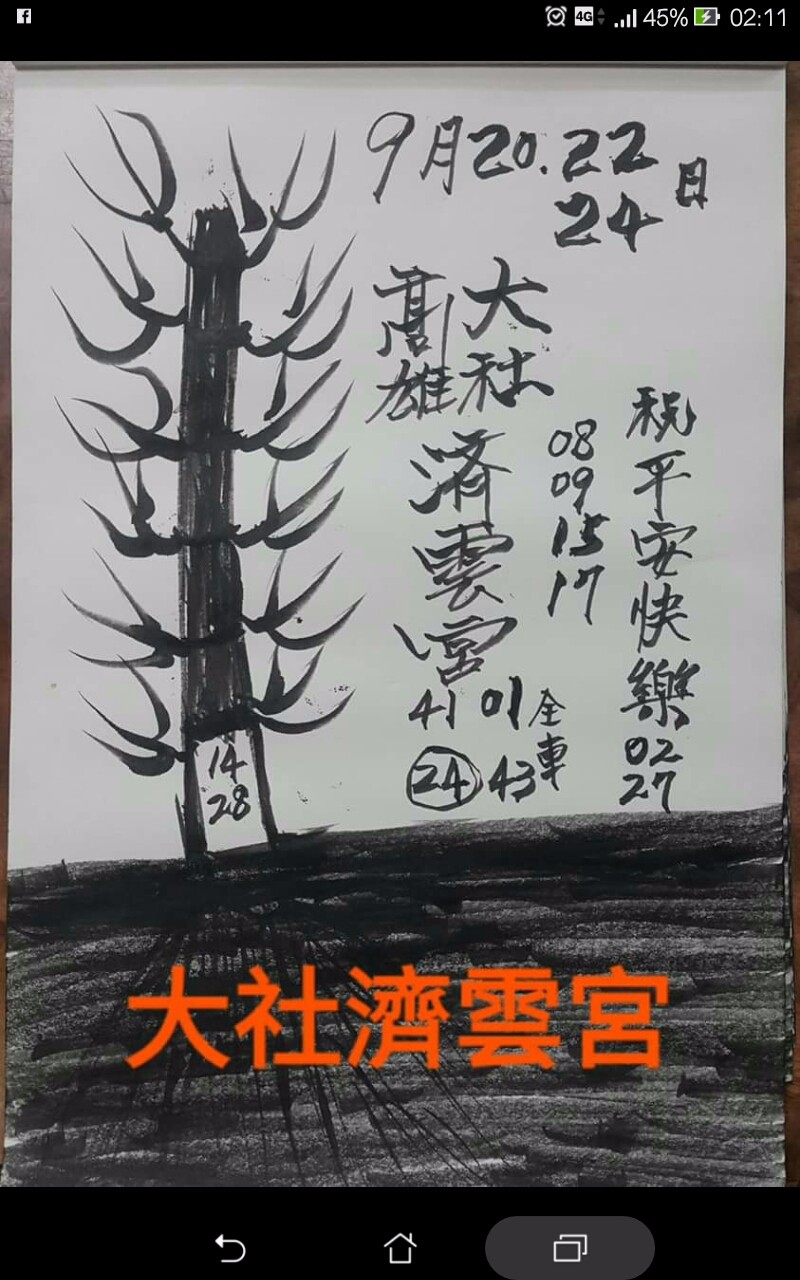 4G 45% 02:11
9月20.22
24日
高雄
大社
済雲宮
08
09
15
17
祝平安快樂
02
27
41 01 全車
24 43
14
28
大社濟雲宮